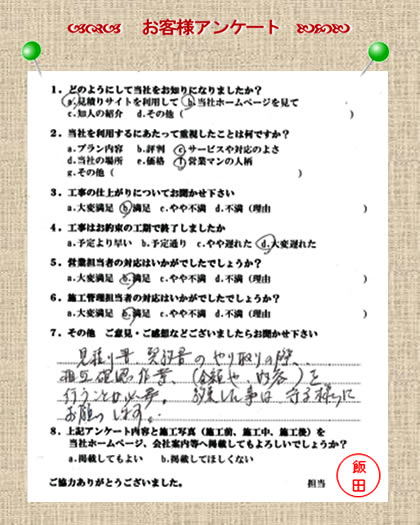 お客様アンケート
1．どのようにして当社をお知りになりましたか？
a.見積りサイトを利用して b.当社ホームページを見て
c.知人の紹介 d.その他（ ）
2．当社を利用するにあたって重視したことは何ですか？
a.プラン内容 b.評判 c.サービスや対応のよさ
d.当社の場所 e.価格 f.営業マンの人柄
g.その他（ ）
3．工事の仕上がりについてお聞かせ下さい
a.大変満足 b.満足 c.やや不満 d.不満（理由 ）
4．工事はお約束の工期で終了しましたか
a.予定より早い b.予定通り c.やや遅れた d.大変遅れた
5．営業担当者の対応はいかがでしたでしょうか？
a.大変満足 b.満足 c.やや不満 d.不満（理由 ）
6．施工管理担当者の対応はいかがでしたでしょうか？
a.大変満足 b.満足 c.やや不満 d.不満（理由 ）
7．その他 ご意見・ご感想などございましたらお聞かせ下さい
見積り書、契約書のやり取りの際、
相互確認作業、（金額や、内容）を
行うことが必要。 約束した事は守る様に
お願いします。
8．上記アンケート内容と施工写真（施工前、施工中、施工後）を
当社ホームページ、会社案内等へ掲載してもよろしいでしょうか？
a.掲載してもよい b.掲載してほしくない
ご協力ありがとうございました。 担当 飯田